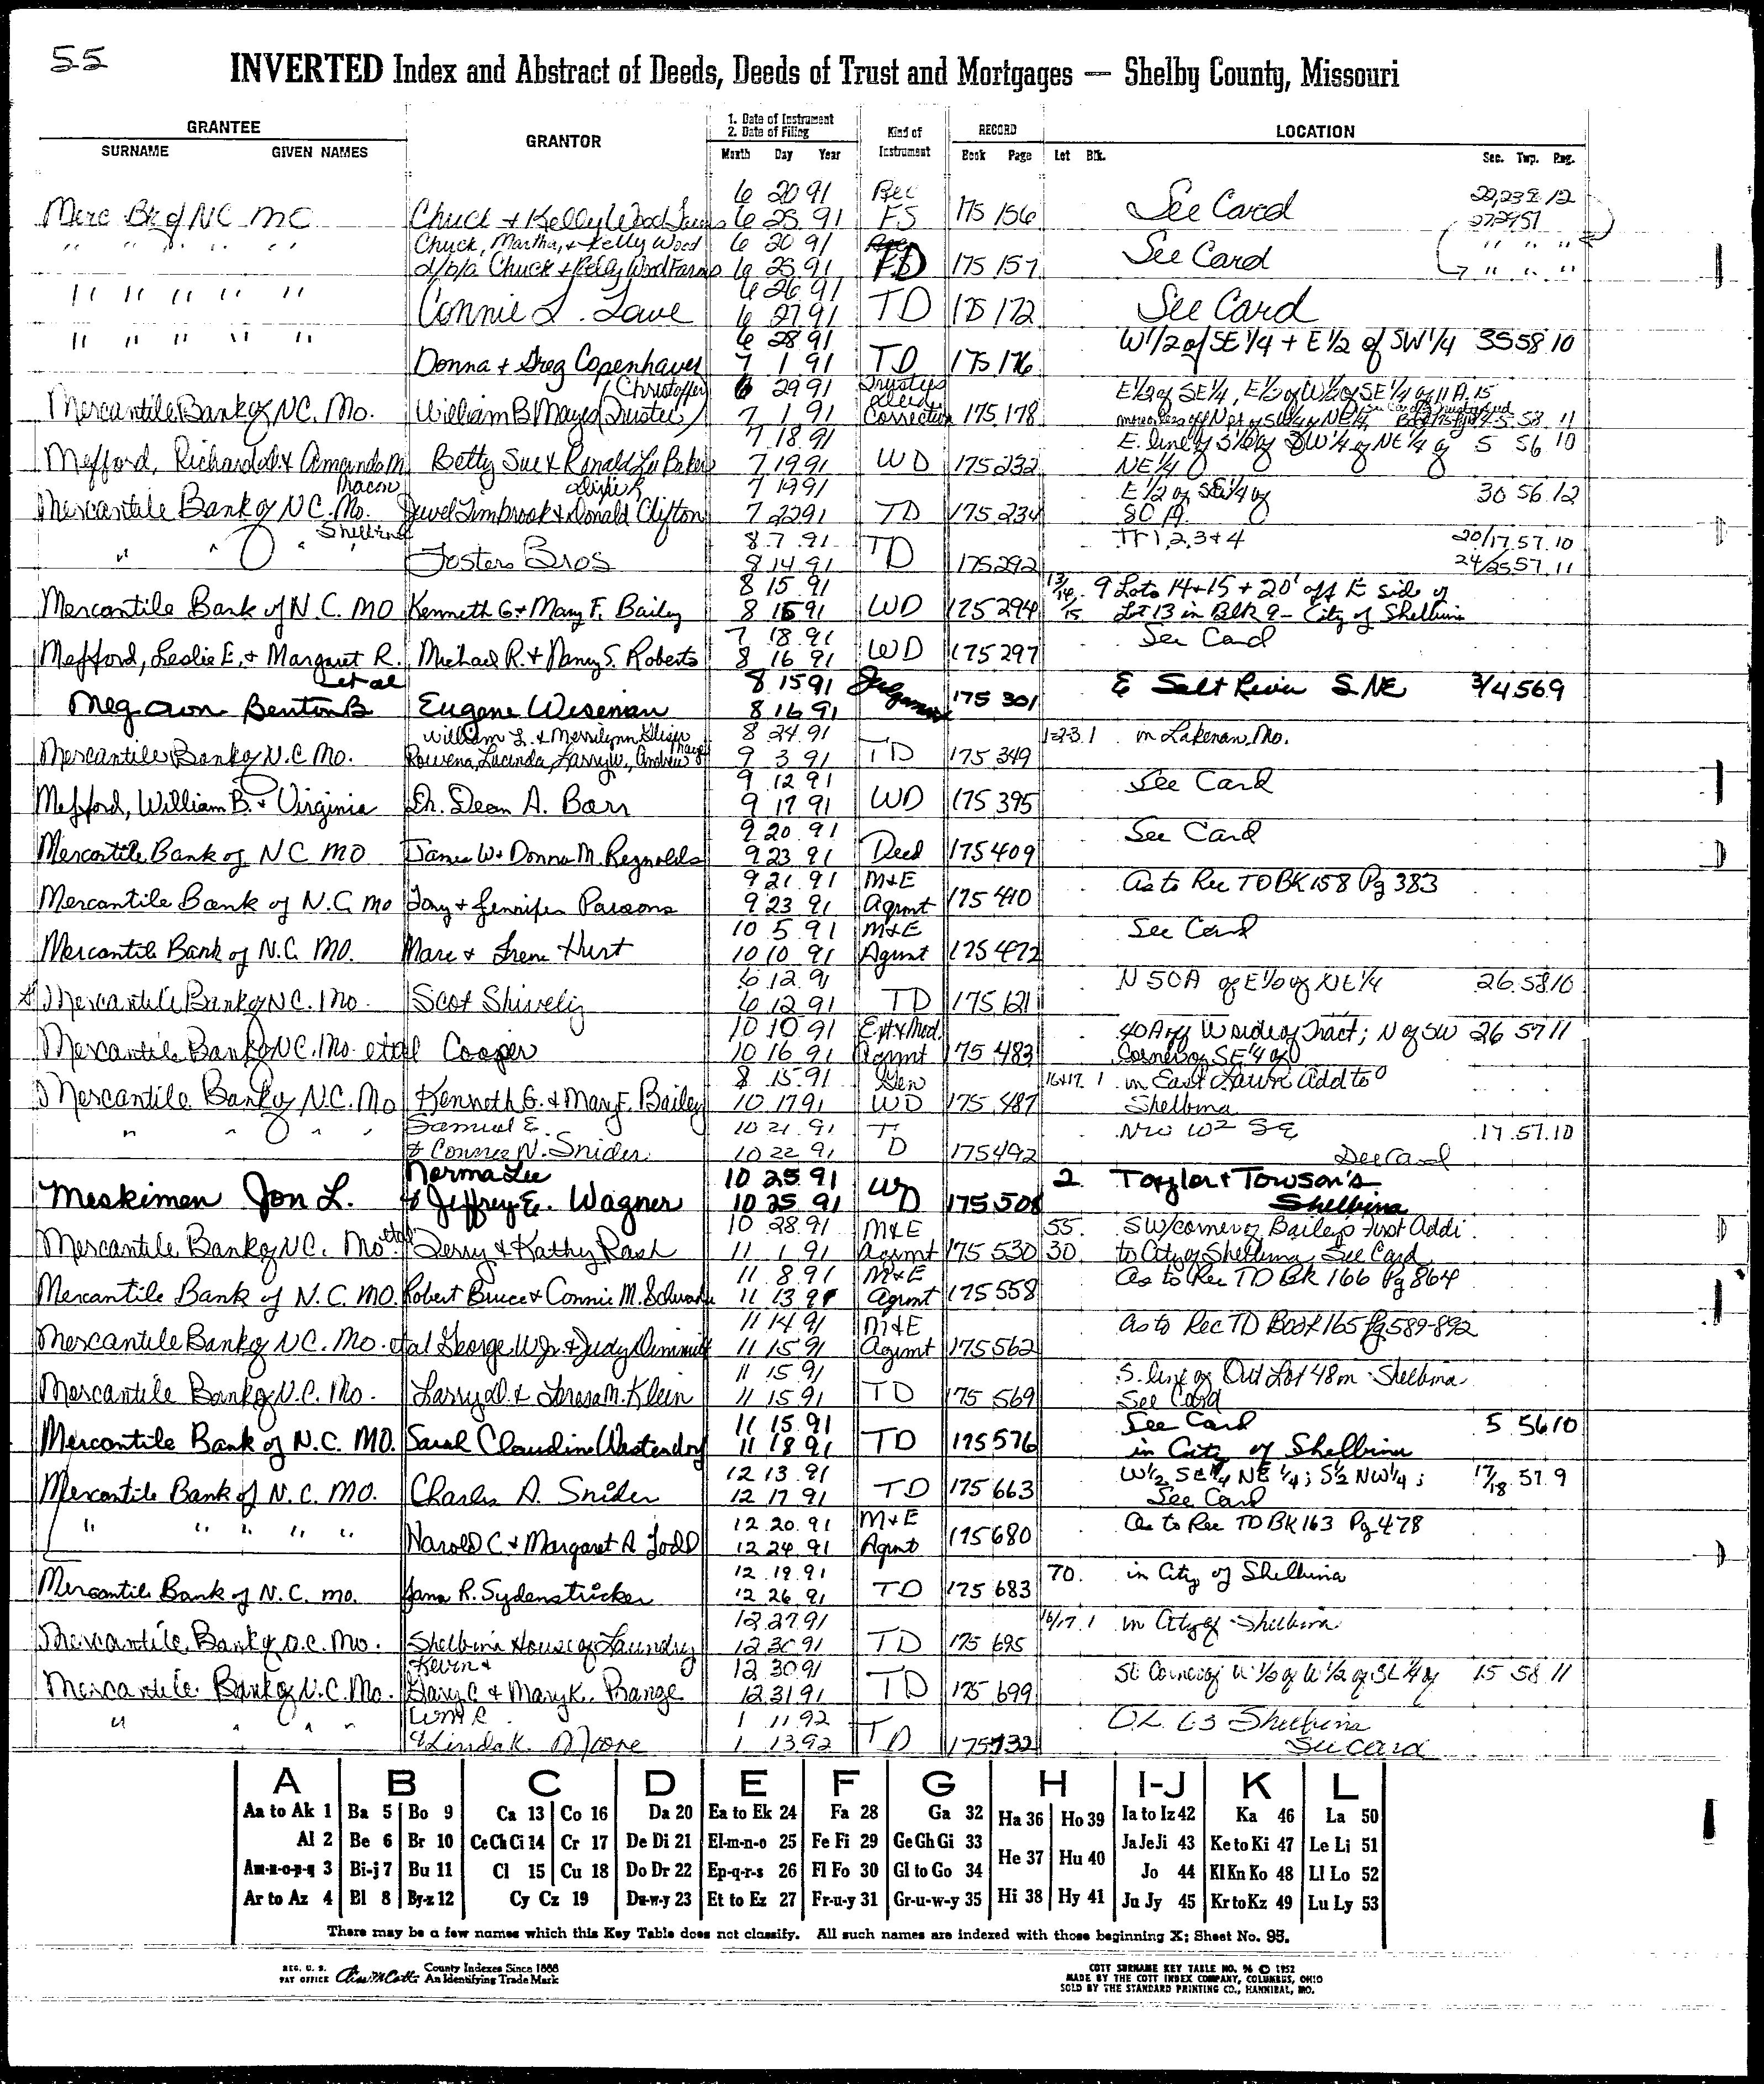 55
INVERTED Index and Abstract of Deeds, Deeds of Trust and Mortgages — Shelby County, Missouri
GRANTEE
SURNAME GIVEN NAMES
GRANTOR
1. Date of Instrument
2. Date of Filing
Month Day Year
Kind of
Instrument
RECORD
Book Page
LOCATION
Lot Blk.
Sec. Twp. Rng.
6 20 91 Rec
Merc Bk of NC MO Chuck + Kelly Wood Farms 6 25 91 FS 175 156 See Card
" " " " " Chuck, Martha, + Kelly Wood 6 20 91
d/b/a Chuck + Kelly Wood Farms 6 25 91 175 157 See Card " " "
" " " " " 6 26 91
Connie L. Lowe 6 27 91 TD 175 172 See Card
" " " " " 6 28 91 W 1/2 of SE 1/4 + E 1/2 of SW 1/4 35 58 10
Donna + Greg Copenhaver 7 1 91 TD 175 176
Christoffer 6 29 91 Trustees Deed E 1/2 of SE 1/4, E 1/2 of W 1/2 of SE 1/4 of 11 A. 15
Mercantile Bank of N.C. Mo. William B Mayes Trustee 7 1 91 Correction 175 178 58 11
7 18 91 E. line of S 1/2 of SW 1/4 of NE 1/4 of 5 56 10
Mefford, Richard + Amanda M Betty Sue + Ronald Lee Baker 7 19 91 WD 175 232 NE 1/4
Macon Dixie R 7 19 91 E 1/2 of SE 1/4 of 30 56 12
Mercantile Bank of N.C. Mo. Jewel Timbrook + Donald Clifton 7 22 91 TD 175 234 80 A
Shelbina 8 7 91 Tr 1, 2, 3 + 4 20/17 57 10
" " " " Fosters Bros 8 14 91 TD 175 292 24/25 57 11
8 15 91 13/14 9 Lots 14+15 + 20' off E side of
Mercantile Bank of N.C. MO Kenneth G. + Mary F. Bailey 8 15 91 WD 175 294 15 Lot 13 in Blk 9 - City of Shelbina
7 18 91 See Card
Mefford, Leslie E. + Margaret R. Michael R. + Nancy S. Roberts 8 16 91 WD 175 297
et al 8 15 91 Judgment E Salt River S NE 3/4 56 9
Megown Benton B Eugene Wiseman 8 16 91 175 301
William L. + Merrilynn Kleiser 8 24 91 1-2-3 1 in Lakenan, Mo.
Mercantile Bank of N.C. Mo. Rowena, Lucinda, Larry W., Andrew J 9 3 91 TD 175 349
9 12 91 See Card
Mefford, William B. + Virginia Dr. Dean A. Barr 9 17 91 WD 175 395
9 20 91 See Card
Mercantile Bank of NC MO James W + Donna M. Reynolds 9 23 91 Deed 175 409
9 21 91 M+E As to Rec TD BK 158 Pg 383
Mercantile Bank of N.C. Mo Tony + Jennifer Parsons 9 23 91 Agrmt 175 410
10 5 91 M+E See Card
Mercantile Bank of N.C. MO. Marc + Irene Hurt 10 10 91 Agrmt 175 472
6 12 91 N 50A of E 1/2 of NE 1/4 26 58 10
Mercantile Bank of N.C. Mo. Scot Shively 6 12 91 TD 175 121
10 10 91 Ext + Mod. 40A off W side of Tract; N of SW 26 57 11
Mercantile Bank of N.C. Mo. et al Cooper 10 16 91 Agrmt 175 483 Corner of SE 1/4 of
8 15 91 Gen 16+17 1 in East Lawn Add to
Mercantile Bank of N.C. Mo Kenneth G. + Mary F. Bailey 10 17 91 WD 175 487 Shelbina
" " " " Samuel E. 10 21 91 NW W2 SE 17 57 10
+ Connie N. Snider 10 22 91 TD 175 492 See Card
Norma Lee 10 25 91 2 Taylor + Towson's
Meskimen Jon L. + Jeffrey E. Wagner 10 25 91 WD 175 508 Shelbina
10 28 91 M+E 55. SW/corner of Bailey's First Addi
Mercantile Bank of N.C. Mo et al Terry + Kathy Rash 11 1 91 Agrmt 175 530 30 to City of Shelbina See Card
11 8 91 M+E As to Rec TD Bk 166 Pg 864
Mercantile Bank of N.C. MO. Robert Bruce + Connie M. 11 13 91 Agrmt 175 558
11 14 91 M+E As to Rec TD Book 165 Pg 589-892
Mercantile Bank of N.C. Mo. et al George W Jr. + Judy Dimmitt 11 15 91 Agrmt 175 562
11 15 91 S. line of Out Lot 48 in Shelbina
Mercantile Bank of N.C. Mo. Larry D. + Teresa M. Klein 11 15 91 TD 175 569 See Card
11 15 91 See Card 5 56 10
Mercantile Bank of N.C. MO. Sarah Claudine Westendorf 11 18 91 TD 175 576 in City of Shelbina
12 13 91 W 1/2 SE 1/4 NE 1/4; S 1/2 NW 1/4; 17/18 57 9
Mercantile Bank of N.C. MO. Charles A. Snider 12 17 91 TD 175 663 See Card
" " " " " 12 20 91 M+E As to Rec TD BK 163 Pg 478
Harold C + Margaret A Todd 12 24 91 Agrmt 175 680
12 19 91 70. in City of Shelbina
Mercantile Bank of N.C. Mo. Jana R. Sydenstricker 12 26 91 TD 175 683
12 27 91 16/17 1 in City of Shelbina
Mercantile Bank of N.C. Mo. Shelbina House of Laundry 12 30 91 TD 175 695
Kevin + 12 30 91 SE Corner of W 1/2 of W 1/2 of SE 1/4 of 15 58 11
Mercantile Bank of N.C. Mo. Gary C + Mary K. Prange 12 31 91 TD 175 699
" " " " Wm R. 1 11 92 O.L. 63 Shelbina
+ Linda K. Moore 1 13 92 TD 175 732 See card
A B C D E F G H I-J K L
Aa to Ak 1 Ba 5 Bo 9 Ca 13 Co 16 Da 20 Ea to Ek 24 Fa 28 Ga 32 Ha 36 Ho 39 Ia to Iz 42 Ka 46 La 50
Al 2 Be 6 Br 10 Ce Ch Ci 14 Cr 17 De Di 21 El-m-n-o 25 Fe Fi 29 Ge Gh Gi 33 He 37 Hu 40 Ja Je Ji 43 Ke to Ki 47 Le Li 51
Am-n-o-p-q 3 Bi-j 7 Bu 11 Cl 15 Cu 18 Do Dr 22 Ep-q-r-s 26 Fl Fo 30 Gl to Go 34 Jo 44 Kl Kn Ko 48 Ll Lo 52
Ar to Az 4 Bl 8 By-z 12 Cy Cz 19 Du-w-y 23 Et to Ez 27 Fr-u-y 31 Gr-u-w-y 35 Hi 38 Hy 41 Ju Jy 45 Kr to Kz 49 Lu Ly 53
There may be a few names which this Key Table does not classify. All such names are indexed with those beginning X; Sheet No. 95.
REG. U. S.
PAT OFFICE
County Indexes Since 1888
An Identifying Trade Mark
COTT SURNAME KEY TABLE NO. 96 © 1952
MADE BY THE COTT INDEX COMPANY, COLUMBUS, OHIO
SOLD BY THE STANDARD PRINTING CO., HANNIBAL, MO.